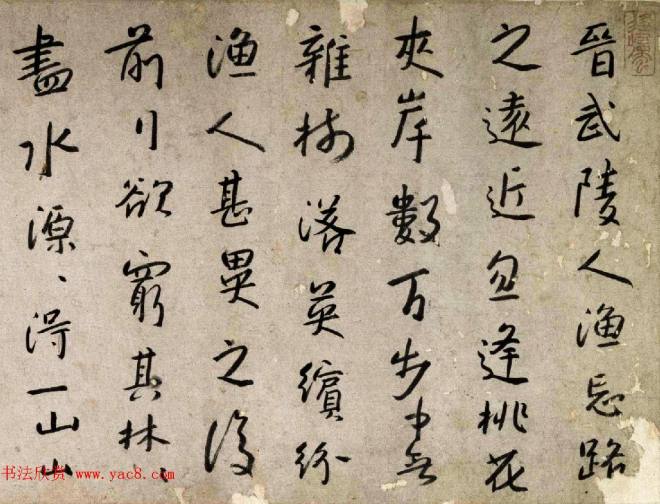 晉武陵人漁忘路
之遠近忽逢桃花
夾岸數百步中無
雜樹落英繽紛
漁人甚異之復
前行欲窮其林〻
盡水源〻得一山山
书法欣赏 www.yac8.com